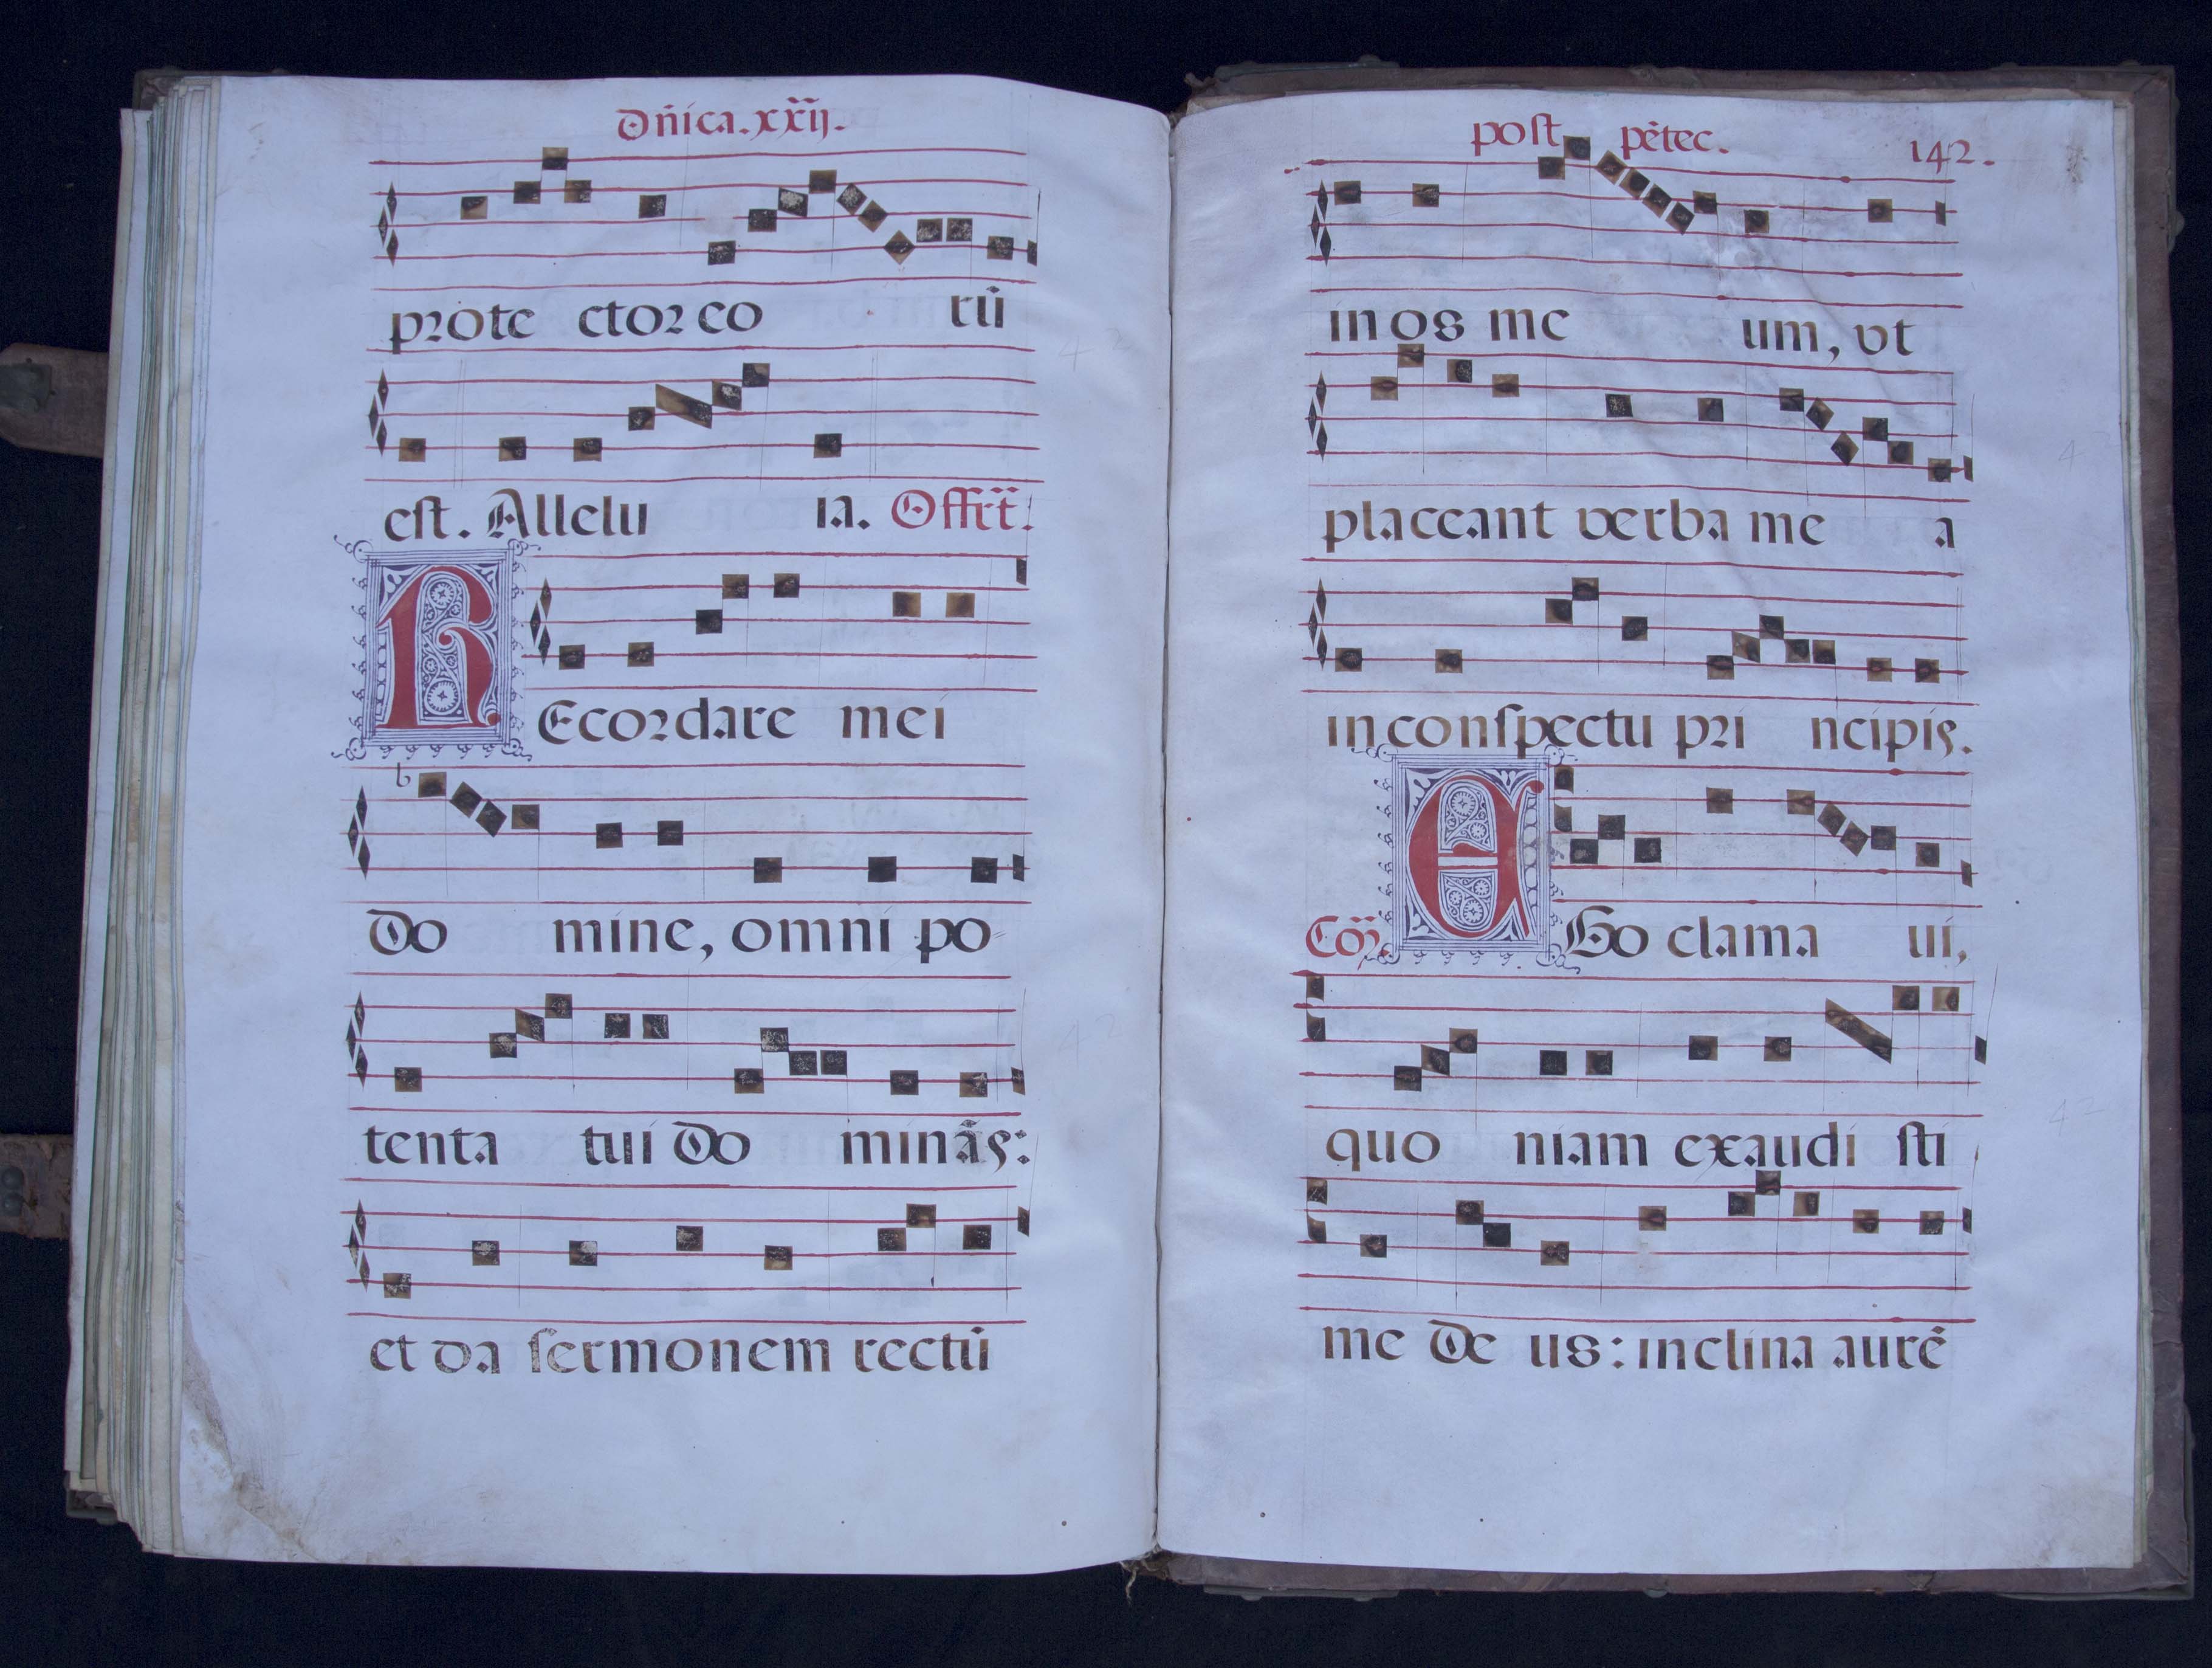 Dn̄ica. xxij.
prote ctor eo rū
est. Allelu ia. Offrt.
REcordare mei
b
Do mine, omni po
tenta tui Do minãs:
et da sermonem rectū
post pētec. 142.
in os me um, vt
placeant verba me a
in conspectu pri ncipis.
Cōo. EGo clama ui,
quo niam exaudi sti
me De us: inclina aurē